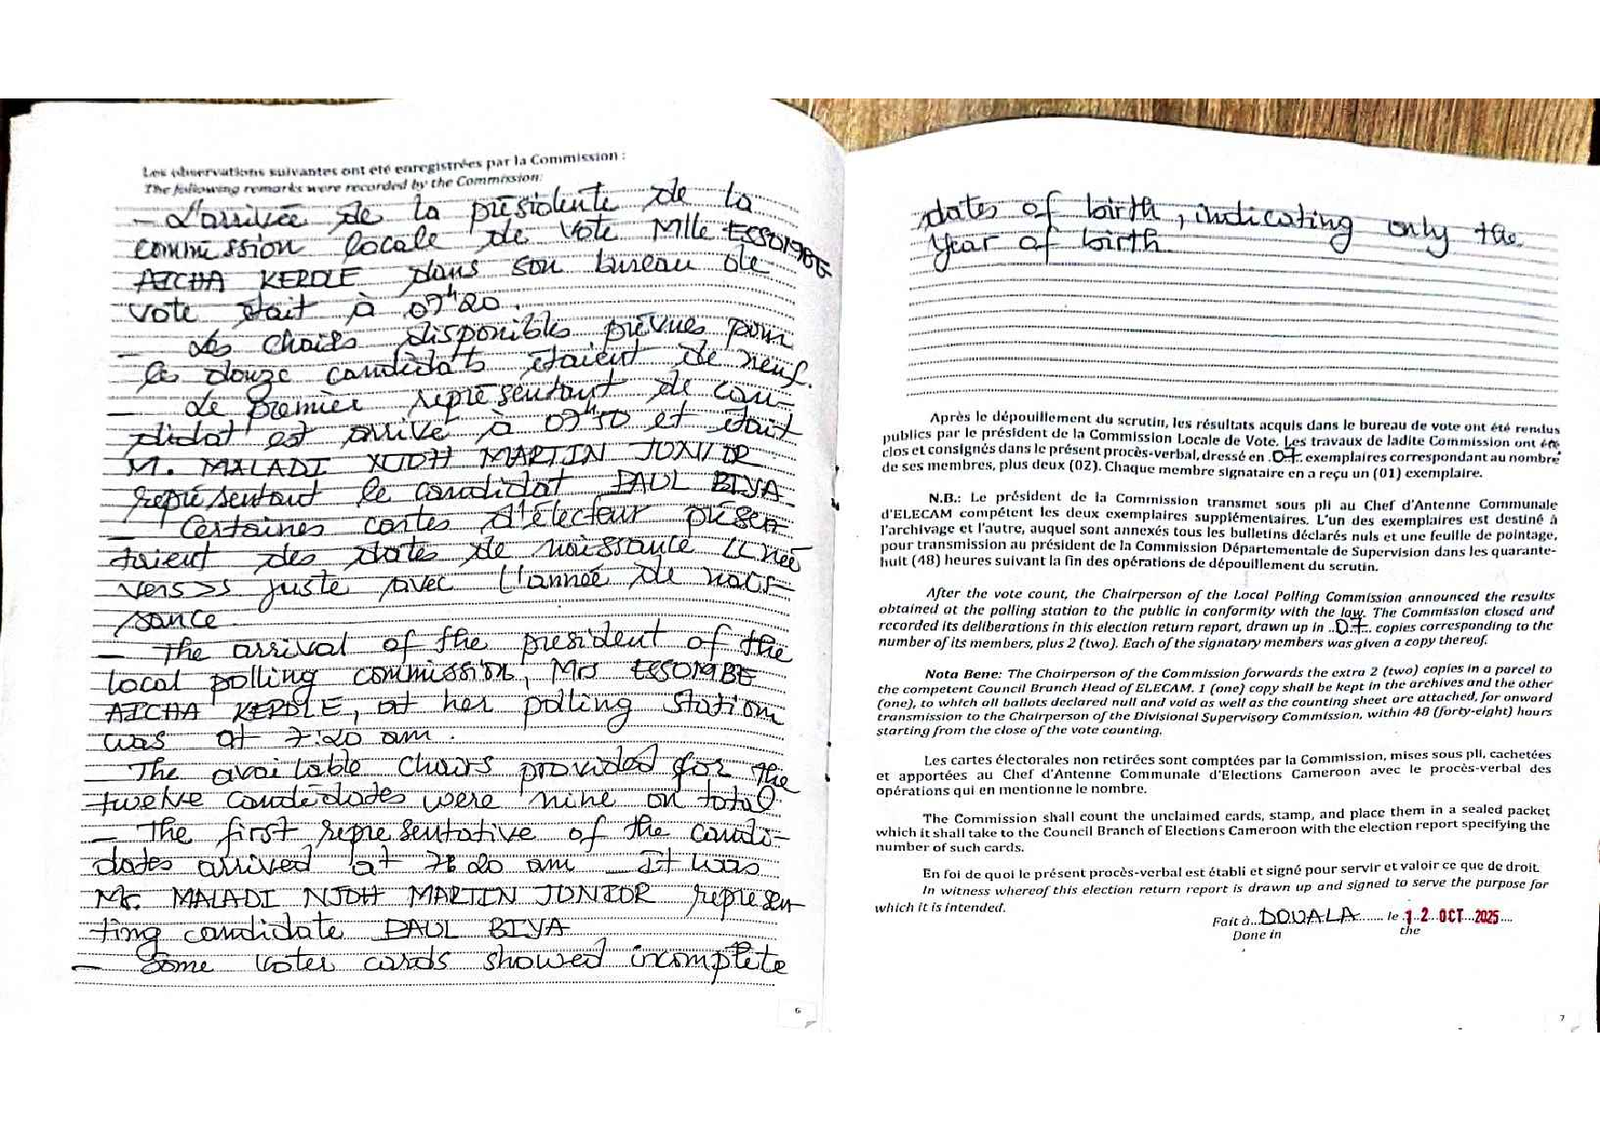 Les observations suivantes ont été enregistrées par la Commission :
The following remarks were recorded by the Commission:
- L'arrivée de la présidente de la
commission locale de vote Mlle ESSOMBE
AICHA KEROLE dans son bureau de
vote était à 07h20.
- Les chaises disponibles prévues pour
les douze candidats étaient de neuf.
- Le premier représentant de can-
didat est arrivé à 07h30 et était
M. MALADI NJOH MARTIN JUNIOR
représentant le candidat PAUL BIYA
- Certaines cartes d'électeur présen-
taient des dates de naissance << née
vers >> juste avec l'année de nais-
sance
- The arrival of the president of the
local polling commission, Mrs ESSOMBE
AICHA KEROLE, at her polling station
was at 7:20 am.
- The available chairs provided for the
twelve candidates were nine on total.
- The first representative of the candi-
dates arrived at 7h20 am It was
Mr. MALADI NJOH MARTIN JUNIOR represen-
ting candidate PAUL BIYA
- Some voter cards showed incomplete
6
dates of birth, indicating only the
Year of birth.
Après le dépouillement du scrutin, les résultats acquis dans le bureau de vote ont été rendus
publics par le président de la Commission Locale de Vote. Les travaux de ladite Commission ont été
clos et consignés dans le présent procès-verbal, dressé en .07. exemplaires correspondant au nombre
de ses membres, plus deux (02). Chaque membre signataire en a reçu un (01) exemplaire.
N.B.: Le président de la Commission transmet sous pli au Chef d'Antenne Communale
d'ELECAM compétent les deux exemplaires supplémentaires. L'un des exemplaires est destiné à
l'archivage et l'autre, auquel sont annexés tous les bulletins déclarés nuls et une feuille de pointage,
pour transmission au président de la Commission Départementale de Supervision dans les quarante-
huit (48) heures suivant la fin des opérations de dépouillement du scrutin.
After the vote count, the Chairperson of the Local Polling Commission announced the results
obtained at the polling station to the public in conformity with the law. The Commission closed and
recorded its deliberations in this election return report, drawn up in ..07.. copies corresponding to the
number of its members, plus 2 (two). Each of the signatory members was given a copy thereof.
Nota Bene: The Chairperson of the Commission forwards the extra 2 (two) copies in a parcel to
the competent Council Branch Head of ELECAM. 1 (one) copy shall be kept in the archives and the other
(one), to which all ballots declared null and void as well as the counting sheet are attached, for onward
transmission to the Chairperson of the Divisional Supervisory Commission, within 48 (forty-eight) hours
starting from the close of the vote counting.
Les cartes électorales non retirées sont comptées par la Commission, mises sous pli, cachetées
et apportées au Chef d'Antenne Communale d'Elections Cameroon avec le procès-verbal des
opérations qui en mentionne le nombre.
The Commission shall count the unclaimed cards, stamp, and place them in a sealed packet
which it shall take to the Council Branch of Elections Cameroon with the election report specifying the
number of such cards.
En foi de quoi le présent procès-verbal est établi et signé pour servir et valoir ce que de droit.
In witness whereof this election return report is drawn up and signed to serve the purpose for
which it is intended.
Fait à DOUALA le 12 OCT 2025
Done in the
7